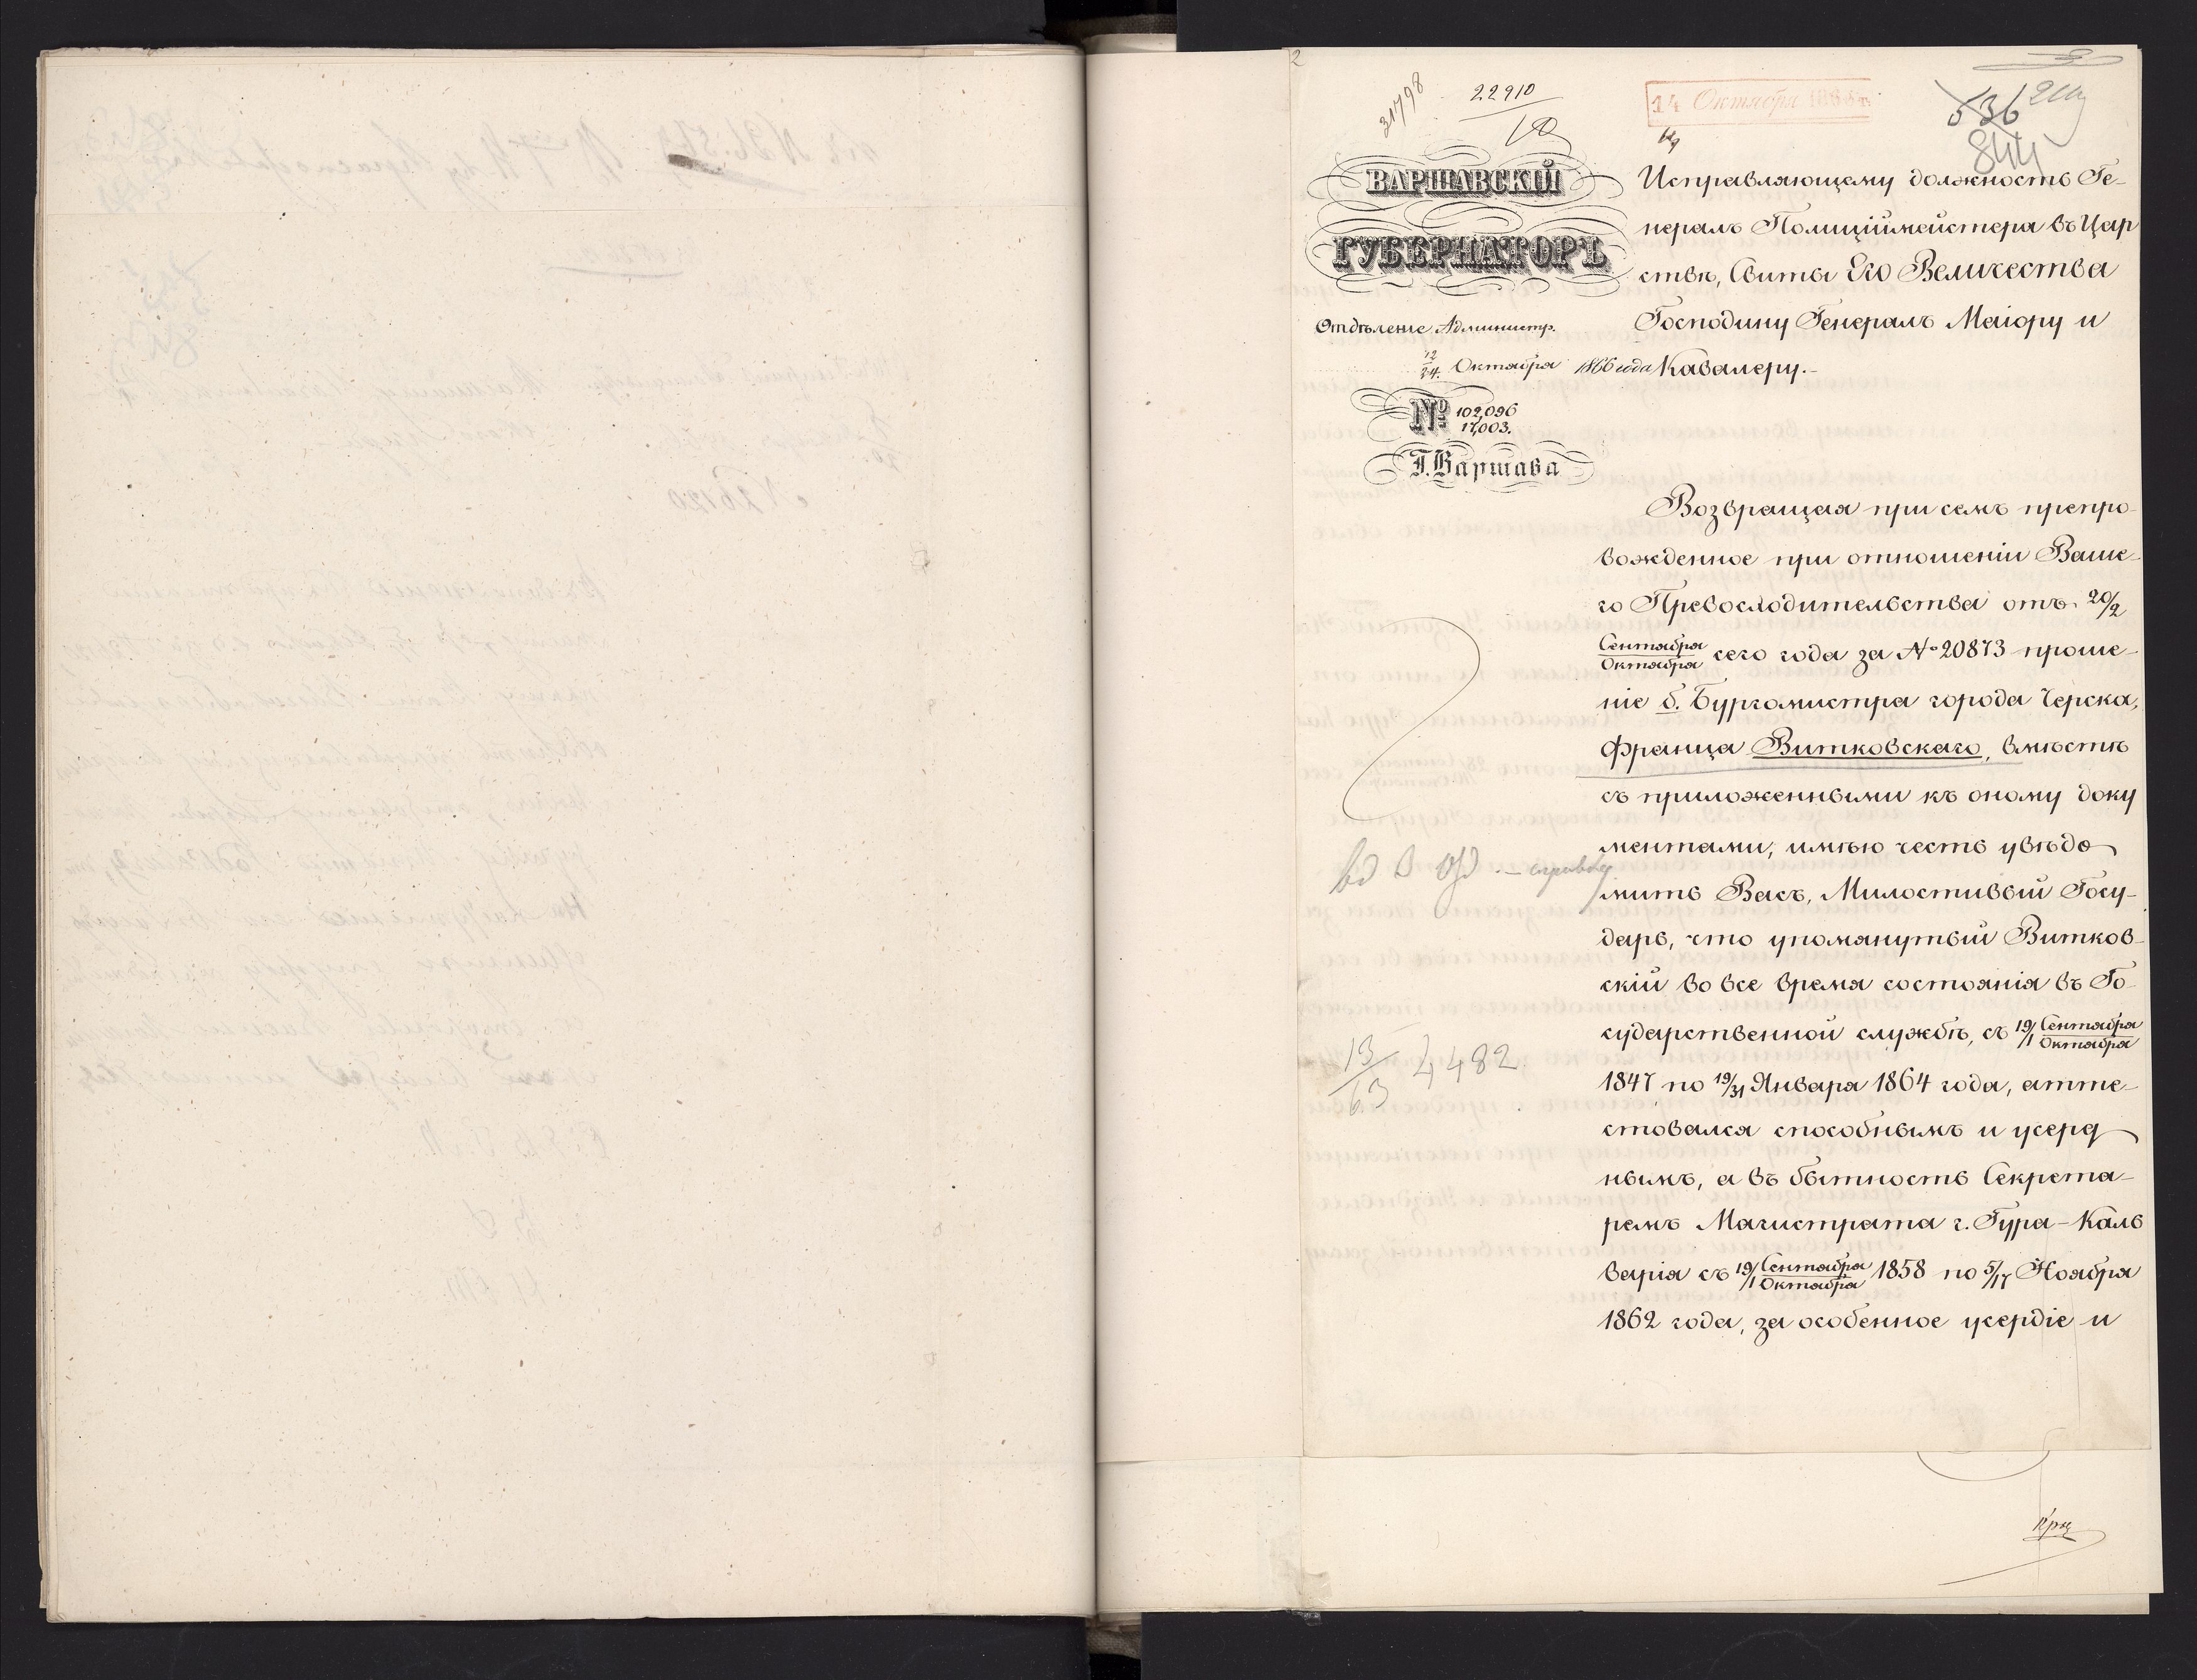 2
31798
22910
14 Октября 1866 г.
536
844
ВАРШАВСКІЙ
ГУБЕРНАТОРЪ
Отдѣленіе Администр.
12/24. Октября 1866 года
№ 102,096
17,003.
Г. Варшава
Исправляющему должность Ге-
нералъ Полиціймейстера въ Цар
ствѣ, Свиты Его Величества
Господину Генералъ Маіору и
Кавалеру.-
Возвращая при семъ препро-
вожденное при отношеніи Ваше-
го Превосходительства отъ 20/2
Сентября/Октября сего года за № 20873 проше-
ніе б. Бургомистра города Черска,
Франца Витковскаго, вмѣстѣ
съ приложенными къ оному доку
ментами, имѣю честь увѣдо
мить Васъ, Милостивый Госу-
дарь, что упомянутый Витков-
скій во все время состоянія въ Го-
сударственной службѣ, съ 19/1 Сентября/Октября
1847 по 19/31 Января 1864 года, атте-
стовался способнымъ и усерд
нымъ, а въ бытность Секрета-
ремъ Магистрата г. Гура-Каль
варія съ 19/1 Сентября/Октября 1858 по 5/17 Ноября
1862 года, за особенное усердіе и
справку
13/63 4482